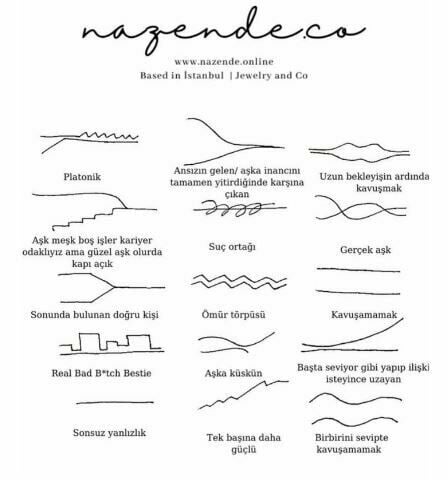 nazende.co
www.nazende.online
Based in İstanbul | Jewelry and Co
Platonik
Ansızın gelen/ aşka inancını
tamamen yitirdiğinde karşına
çıkan
Uzun bekleyişin ardında
kavuşmak
Aşk meşk boş işler kariyer
odaklıyız ama güzel aşk olurda
kapı açık
Suç ortağı
Gerçek aşk
Sonunda bulunan doğru kişi
Ömür törpüsü
Kavuşamamak
Real Bad B*tch Bestie
Aşka küskün
Başta seviyor gibi yapıp ilişki
isteyince uzayan
Sonsuz yanlizlik
Tek başına daha
güçlü
Birbirini sevipte
kavuşamamak